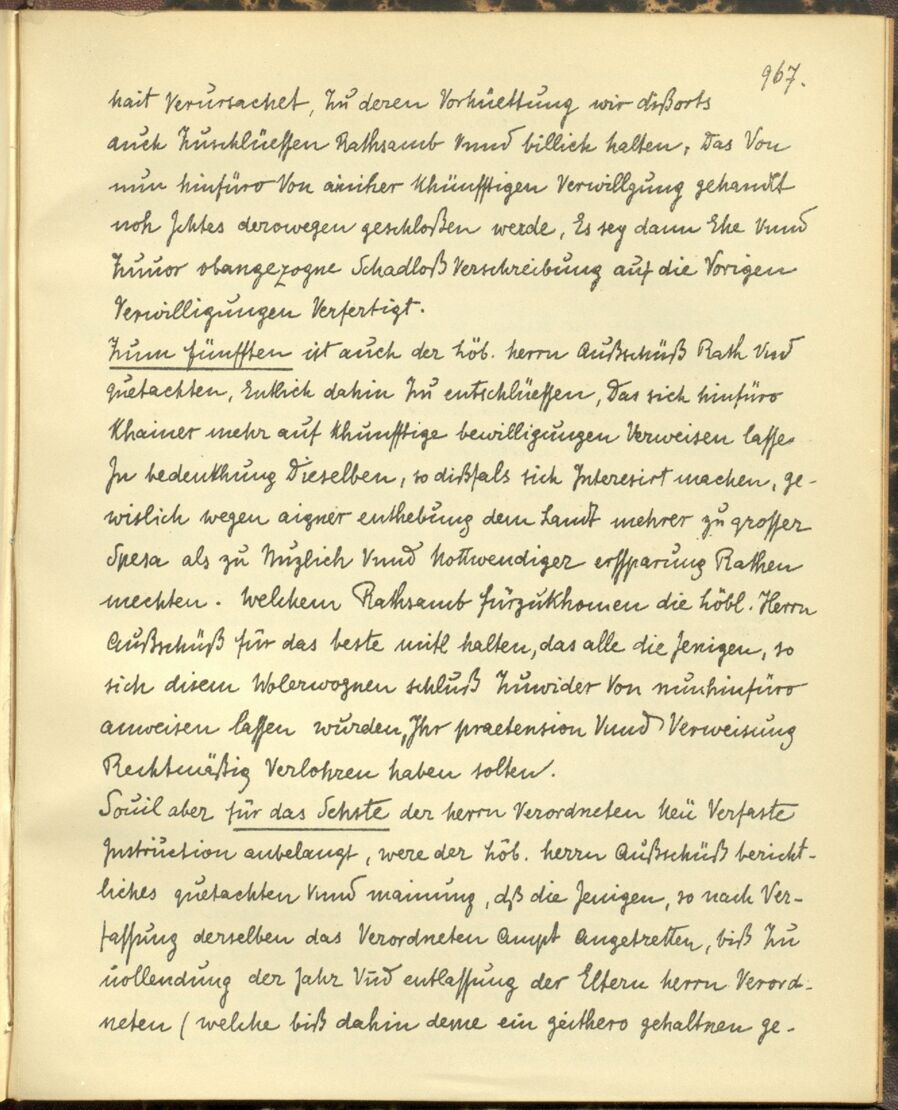 967.
hait Verursachet, Zu deren Vorhüettung wir dißorts
auch Zuschlüessen Rathsamb Vnnd billich halten, Das Von
nun hinfüro Von ainiher Khünfftigen Verwilligung gehandlt
noh Ichtes derowegen geschloßen werde, Es sey dann Ehe Vnnd
Zuuor obangezogne Schadloß Verschreibung auf die Vorigen
Verwilligungen Verfertigt.
Zum fünfften ist auch der höb. herrn Außschüß Rath Vnd
guetachten, Entlich dahin Zu entschlüessen, Das sich hinfüro
Khainer mehr auf Khunfftige bewilligungen Verweisen lasse
In bedenkhung Dieselben, so dißfals sich Interesirt machen, ge-
wislich wegen aigner enthebung dem Landt mehrer zu grosser
Spesa als zu Nuzlich Vnnd Nottwendiger ersparung Rathen
mechten. Welchem Rathsamb fürzukhomen die höbl. Herrn
Außschüß für das beste mitl halten, das alle die Jenigen, so
sich disem Wolerwognen schluß Zuwider Von nunhinfüro
anweisen lassen wurden, Ihr praetension Vnnd Verweisung
Rechtmäßig Verlohren haben solten.
Souil aber für das Sehste der herrn Verordneten Neü Verfaste
Instruction anbelangt, were der höb. herrn Außschüß bericht-
liches guetachten Vnnd mainung, dß die Jenigen, so nach Ver-
fassung derselben das Verordneten Ampt Angetretten, biß Zu
uollendung der Jahr Vnd entlassung der Eltern herrn Verord-
neten (welche biß dahin deme ein zeithero gehaltnen ge-